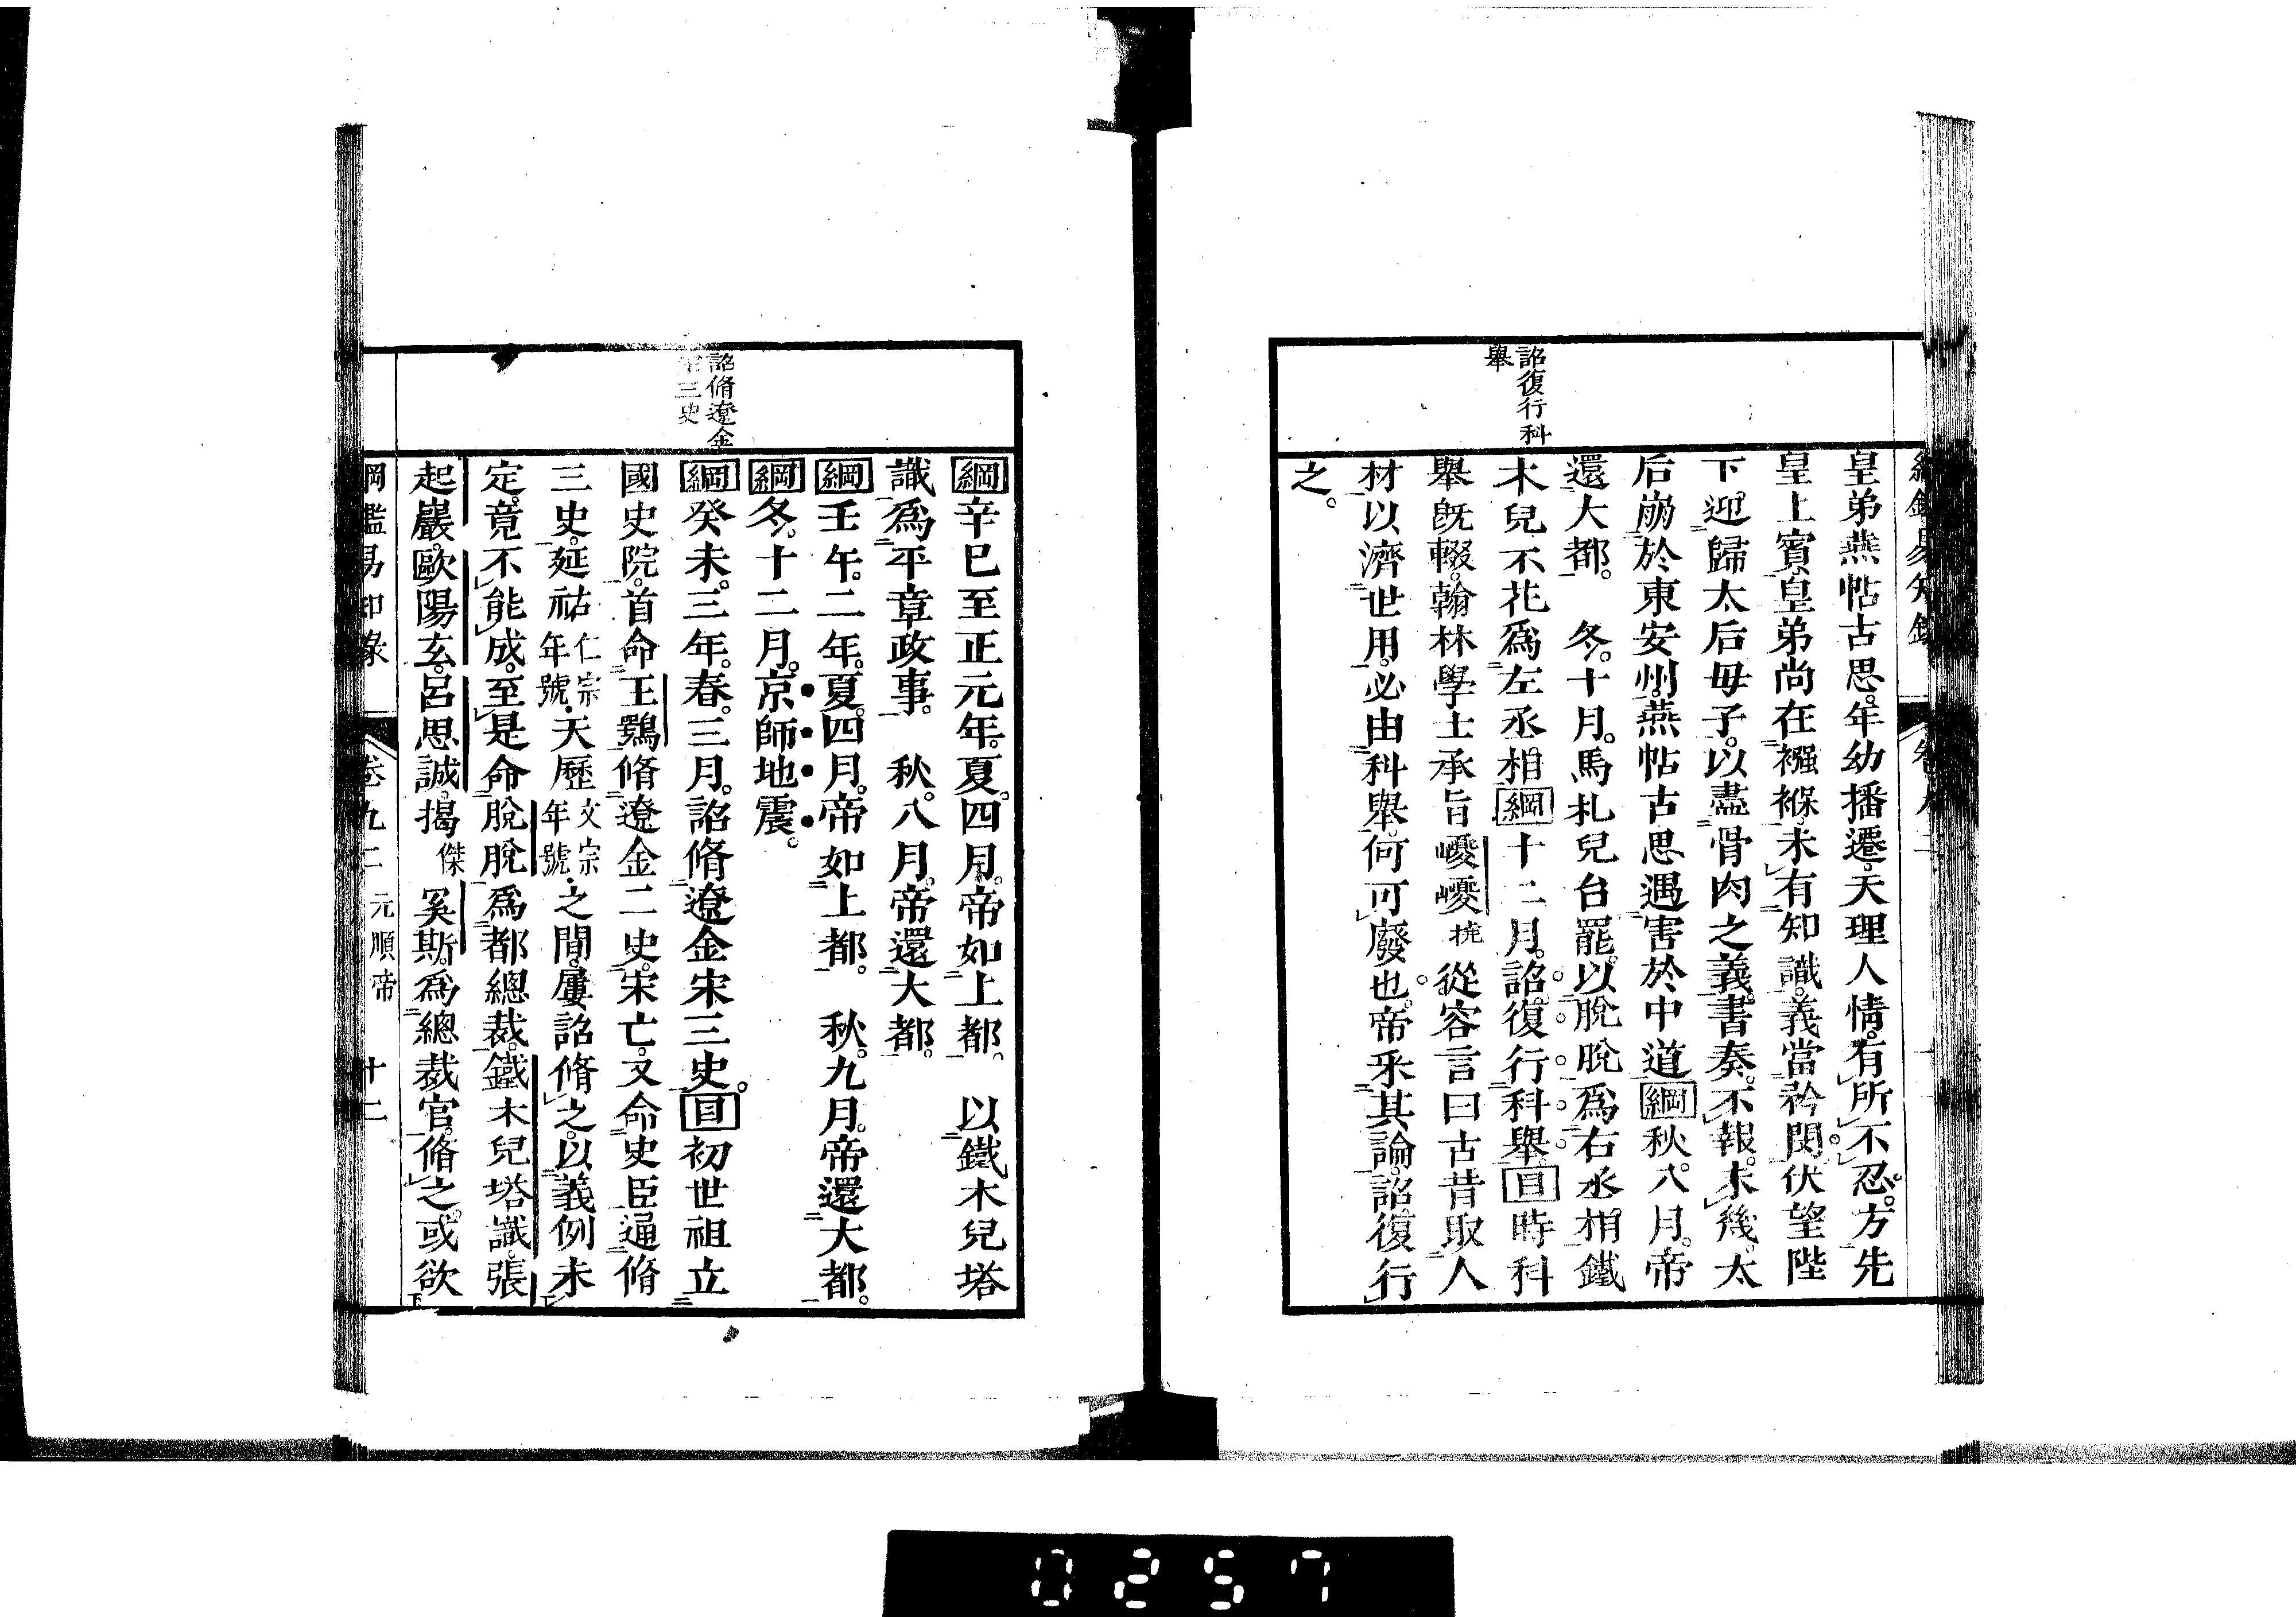 詔復行科
舉
皇弟燕帖古思。年幼播遷。天理人情。有所不忍。方先
皇上賓。皇弟尚在襁褓。未有知識。義當矜閔。伏望陛
下。迎歸太后毋子。以盡骨肉之義。書奏。不報。未幾。太
后崩於東安州。燕帖古思遇害於中道綱秋。八月。帝
還大都。 冬。十月。馬札兒台罷。以脫脫爲右丞相。鐵
木兒不花爲左丞相綱十二月。詔復行科舉。目時科
舉旣輟。翰林學士承旨巙巙撓從容言曰古昔取人
材以濟世用。必由科舉。何可廢也。帝釆其論。詔復行
之。
詔脩遼金
三史
綱辛巳至正元年。夏。四月。帝如上都。 以鐵木兒塔
識爲平章政事。 秋。八月。帝還大都。
綱壬午。二年。夏。四月。帝如上都。 秋。九月。帝還大都。
綱冬。十二月。京師地震。
綱癸未。三年。春。三月。詔脩遼金宋三史。目初世祖立
國史院。首命王鶚脩遼金二史。宋亡。又命史臣逼脩
三史。延祐仁宗年號·天歷文宗年號·之間。屢詔脩之。以義例未
定。竟不能成。至是命脫脫爲都總裁。鐵木兒塔識。張
起巖。歐陽玄。呂思誠。揭傒斯。爲總裁官。脩之。或欲
綱鑑易知錄 卷九二 元順帝 十二